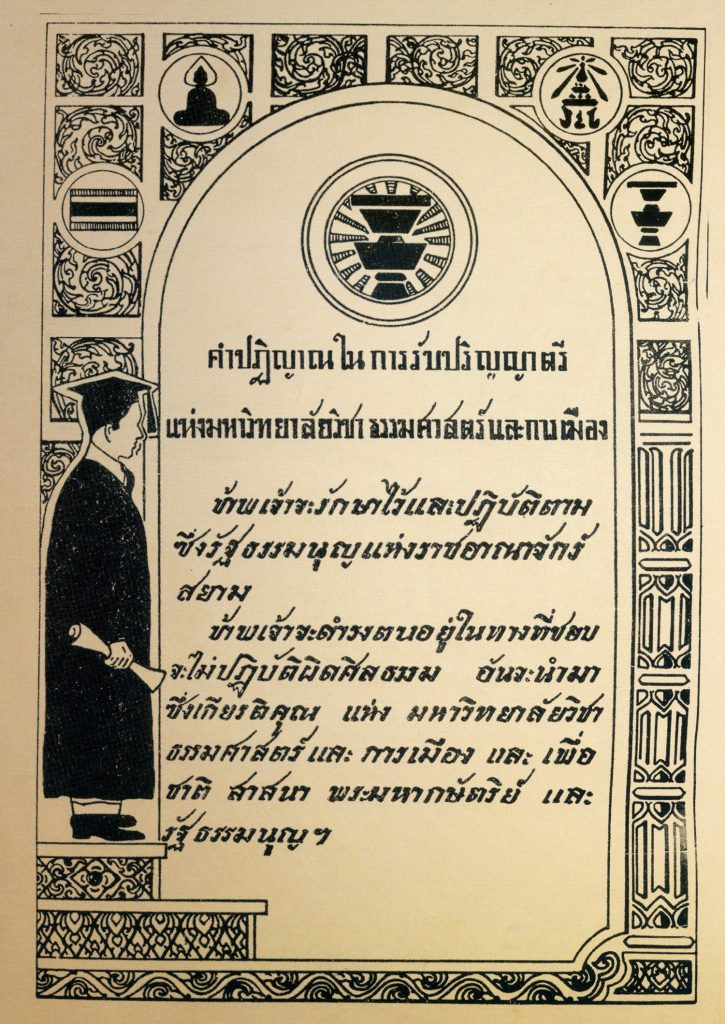 คำปฏิญาณในการรับปริญญาตรี
แห่งมหาวิทยาลัยวิชาธรรมศาสตร์และการเมือง
ข้าพเจ้าจะรักษาไว้และปฏิบัติตาม
ซึ่งรัฐธรรมนุญแห่งราชอาณาจักร์
สยาม
ข้าพเจ้าจะดำรงตนอยู่ในทางที่ชอบ
จะไม่ปฏิบัติผิดศีลธรรม อันจะนำมา
ซึ่งเกียรติคุณ แห่ง มหาวิทยาลัยวิชา
ธรรมศาสตร์และ การเมือง และ เพื่อ
ชาติ สาสนา พระมหากษัตริย์ และ
รัฐธรรมนุญฯ